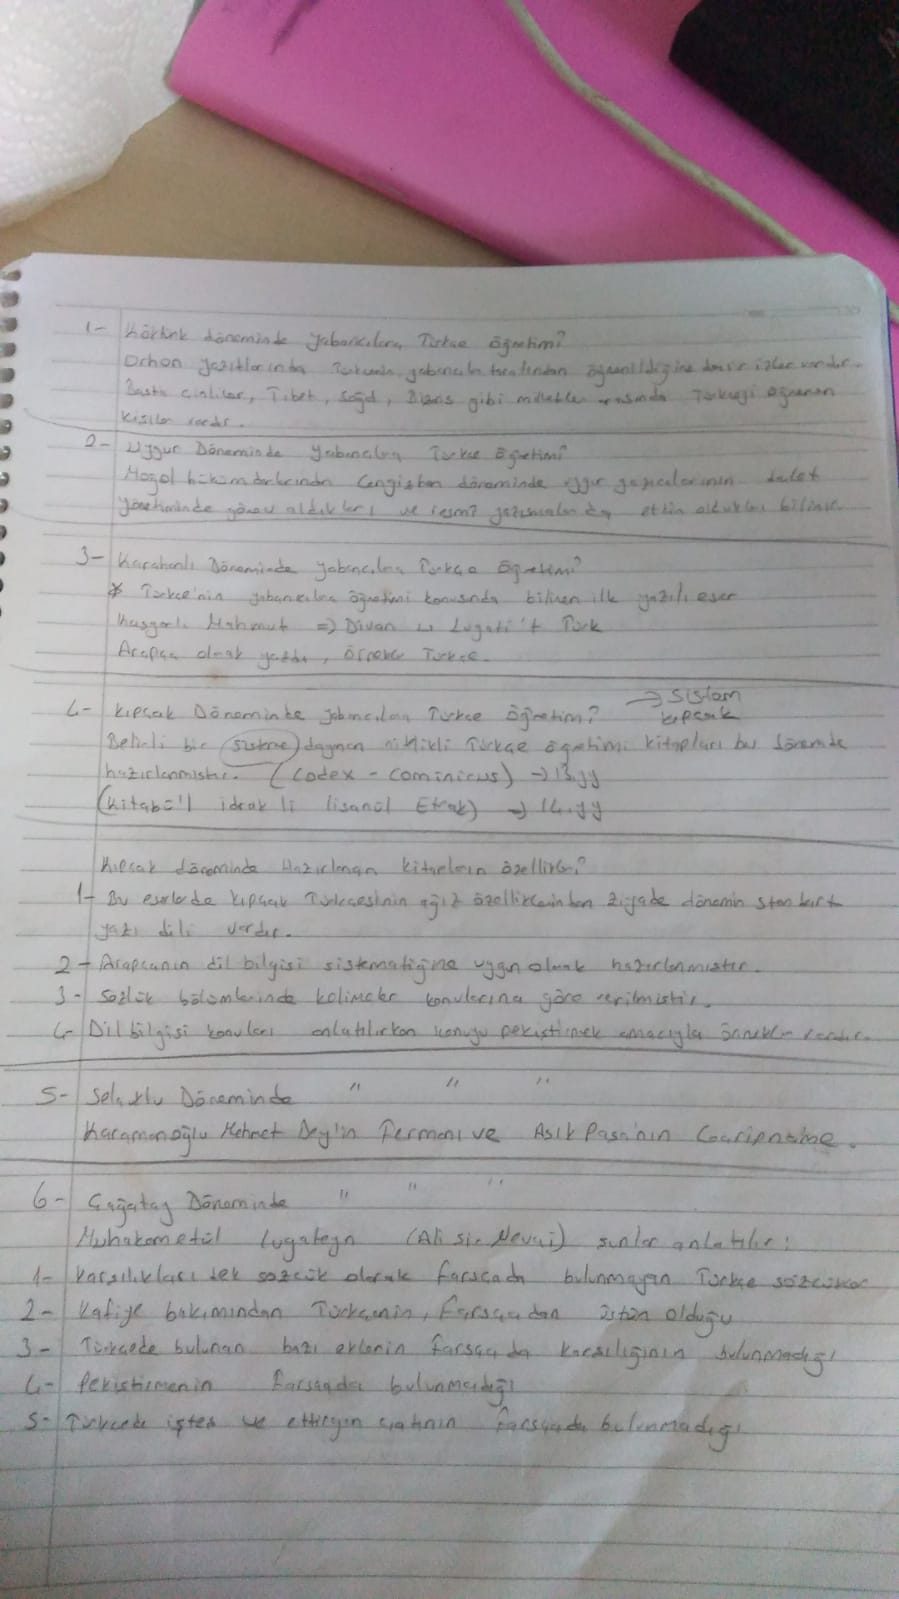 1- Köktürk döneminde yabancılara Türkçe öğretimi?
Orhon yazıtlarında Türkçenin yabancılar tarafından öğrenildiğine dair izler vardır.
Başta Çinliler, Tibet, Soğd, Bizans gibi milletler arasında Türkçeyi öğrenen
kişiler vardır.
2- Uygur Döneminde yabancılara Türkçe Öğretimi?
Moğol hükümdarlarından Cengizhan döneminde uygur yazıcılarının dalet
yönetiminde görev aldıkları ve resmi yazışmalarda etkin oldukları bilinir.
3- Karahanlı Döneminde yabancılara Türkçe Öğretimi?
* Türkçe'nin yabancılara öğretimi konusunda bilinen ilk yazılı eser
Kaşgarlı Mahmut => Divan ü Lugati't Türk
Arapça olarak yazıldı, örnekler Türkçe.
4- Kıpçak Döneminde yabancılara Türkçe Öğretimi? → Sislam
kıpçak
Belirli bir (sisteme) dayanan nitelikli Türkçe öğretimi kitapları bu dönemde
hazırlanmıştır. (Codex - Cominicus) → 13.yy
(Kitabü'l idrak li lisanül Etrak) → 14.yy
Kıpçak döneminde Hazırlanan kitapların özellikleri?
1- Bu eserlerde Kıpçak Türkçesinin ağız özelliklerinden ziyade dönemin standart
yazı dili vardır.
2- Arapçanın dil bilgisi sistematiğine uygun olarak hazırlanmıştır.
3- Sözlük bölümlerinde kelimeler konularına göre verilmiştir.
4- Dil bilgisi konuları anlatılırken konuyu pekiştirmek amacıyla örnekler vardır.
5- Selçuklu Döneminde " " "
Karamanoğlu Mehmet Bey'in Fermanı ve Aşık Paşa'nın Garipname.
6- Çağatay Döneminde " " "
Muhakemetül lugateyn (Ali Şir Nevai) şunlar anlatılır:
1- Karşılıkları tek sözcük olarak Farsçada bulunmayan Türkçe sözcükler
2- Kafiye bakımından Türkçenin, Farsçadan üstün olduğu
3- Türkçede bulunan bazı eklerin Farsçada karşılığının bulunmadığı
4- Pekiştirmenin Farsçada bulunmadığı
5- Türkçede işteş ve ettirgen çatının Farsçada bulunmadığı